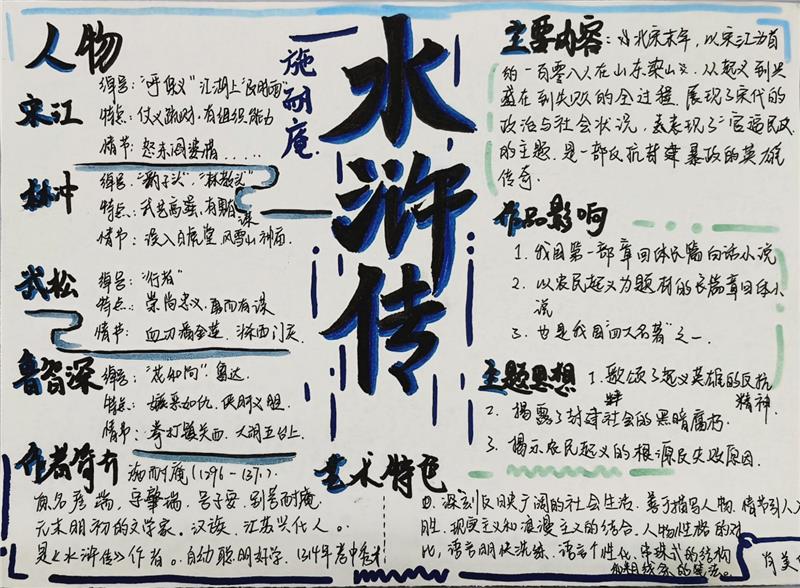 人物
宋江
绰号:"呼保义" 江湖上"及时雨"
特点:仗义疏财,有组织能力
情节:怒杀阎婆惜......
林冲
绰号:"豹子头","林教头"
特点:武艺高强,有勇有谋
情节:误入白虎堂,风雪山神庙.
武松
绰号:"行者"
特点:崇尚忠义,勇而有谋
情节:血刃潘金莲,斗杀西门庆
鲁智深
绰号:"花和尚" 鲁达.
特点:嫉恶如仇,侠肝义胆
情节:拳打镇关西,大闹五台山
作者简介
施耐庵(1296-137.)
原名彦端,字肇瑞,号子安,别号耐庵
元末明初的文学家。汉族,江苏兴化人。
是《水浒传》作者。自幼聪明好学,1314年考中秀才
施耐庵
水浒传
主要内容:
北宋末年,以宋江为首
的一百零八人在山东梁山
从起义到兴
盛在到失败的全过程.展现了宋代的
政治与社会状况,
表现了"官逼民反"
的主题.是一部反抗封建暴政的英雄
传奇.
作品影响
1. 我国第一部章回体长篇白话小说
2. 以农民起义为题材的长篇章回体小
说
3. 也是我国"四大名著"之一.
主题思想
1. 歌颂了起义英雄的反抗
精神
2. 揭露了封建社会的黑暗腐朽.
3. 揭示农民起义的根源
失败原因.
艺术特色
深刻反映广阔的社会生活,善于描写人物.情节引人入
胜.现实主义和浪漫主义的结合.人物性格的对
比,语言明快洗练,语言个性化.串珠式的结构